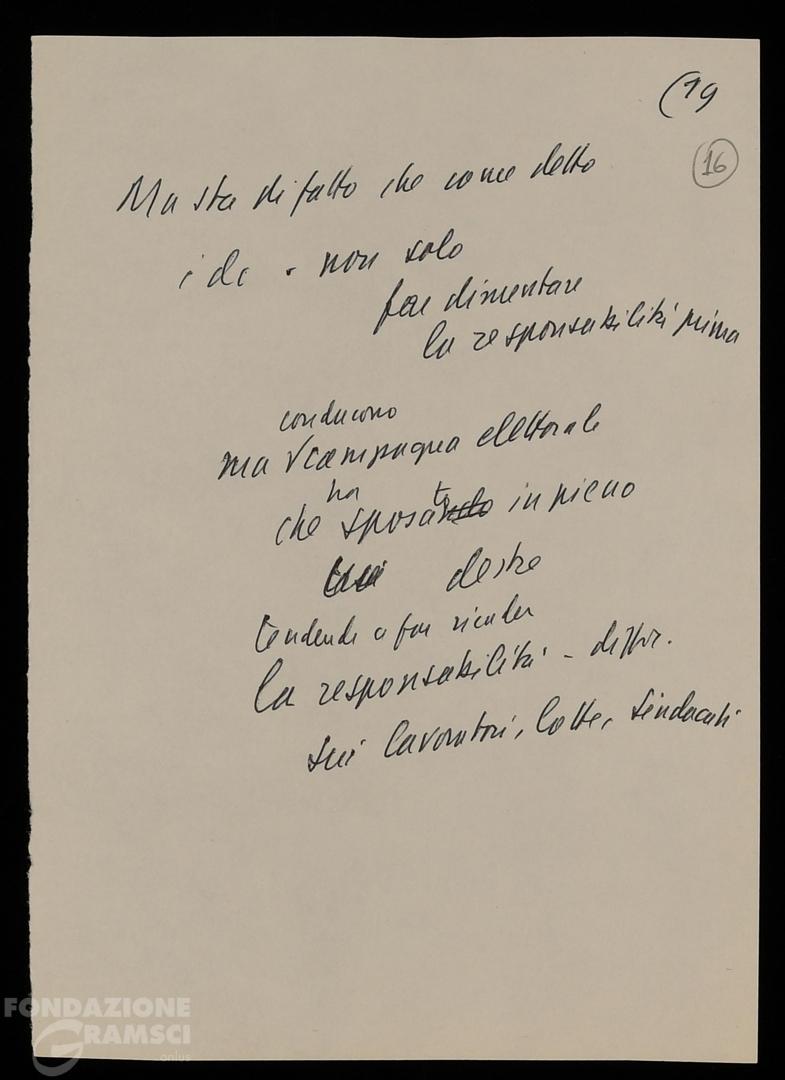 (19
16
Ma sta di fatto che come detto
i dc. non solo
far dimenticare
la responsabilità prima
conducono
ma V campagna elettorale
ha t
che sposta in pieno
destre
tendendo a far ricader
la responsabilità -
sui lavoratori, lotte, sindacati
FONDAZIONE
GRAMSCI
onlus